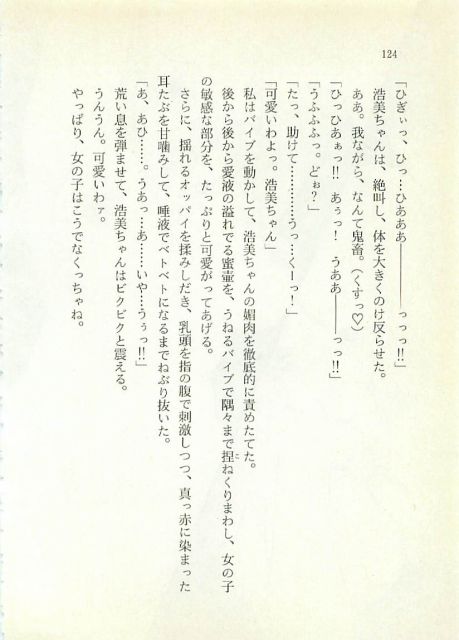 124
「ひぎぃっ、ひっ…ひあああ――――っっっ!!」
浩美ちゃんは、絶叫し、体を大きくのけ反らせた。
ああ。我ながら、なんて鬼畜。（くすっ♡）
「ひっひあぁっ!!　あぅっ!　うああ――――っっ!!」
「うふふふっ。どぉ?」
「たっ、助けて…………うっ…くーっ!」
「可愛いわよっ。浩美ちゃん」
私はバイブを動かして、浩美ちゃんの媚肉を徹底的に責めたてた。
後から後から愛液の溢れでる蜜壷を、うねるバイブで隅々まで捏ねくりまわし、女の子
の敏感な部分を、たっぷりと可愛がってあげる。
さらに、揺れるオッパイを揉みしだき、乳頭を指の腹で刺激しつつ、真っ赤に染まった
耳たぶを甘噛みして、唾液でベトベトになるまでねぶり抜いた。
「あ、あひ……。うあっ…あ……いや…うぅっ!!」
荒い息を弾ませて、浩美ちゃんはビクビクと震える。
うんうん。可愛いわァ。
やっぱり、女の子はこうでなくっちゃね。